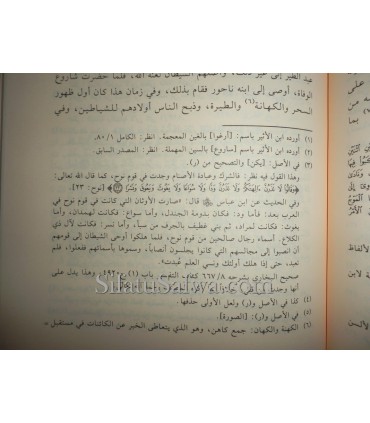 عبد الطير إلى غير الشيطان لعنه الله، فلما حضرت شاروغ
الوفاة، أوصى إلى ابنه ناحور فقام بذلك، وفي زمان هذا كان أول ظهور
السحر والكهانة(٦) والطيرة، وذبح الناس أولادهم للشياطين، وفي
(١) أورده ابن الأثير باسم: [أرغوا] بالغين المعجمة. انظر: الكامل ٨٠/١.
(٢) أورده ابن الأثير باسم: [ساروع] بالسين المهملة. انظر: المصدر السابق
(٣) في الأصل: [يكن] والتصحيح من (ر).
وهذا القول فيه نظر: فالشرك وعبادة الأصنام وجدت في قوم نوح، كما قال الله تعالى:
﴿وَقَالُوا لَا تَذَرُنَّ آلِهَتَكُمْ وَلَا تَذَرُنَّ وَدًّا وَلَا سُوَاعًا وَلَا يَغُوثَ وَيَعُوقَ وَنَسْرًا﴾ [نوح: ٢٣].
وفي الحديث عن ابن عباس قال: «صارت الأوثان التي كانت في قوم نوح في
العرب بعد: فأما ود: فكانت بدومة الجندل، وأما سواع: فكانت لهمدان، وأما
يغوث: فكانت لمراد، ثم بني غطيف بالجرف من سبأ، وأما نسر: فكانت لآل ذي
الكلاع، أسماء رجال صالحين من قوم نوح، فلما هلكوا أوحى الشيطان إلى قومهم
أن انصبوا إلى مجالسهم التي كانوا يجلسون أنصاباً، وسموها بأسمائهم ففعلوا، فلم
تعبد، حتى إذا هلك أولئك ونسي العلم عُبدت».
صحيح البخاري بشرحه ٦٦٧/٨، كتاب التفسير، باب (١)، وهذا يدل على
أنها وجدت
(٤) كذا في الأصل و(ر) ولعل الأولى حذفها.
(٥) في الأصل و(ر): [الصورة].
(٦) الكهنة والكهان: جمع كاهن، وهو الذي يتعاطى الخبر عن الكائنات في مستقبل =
على
بما
الألفاظ